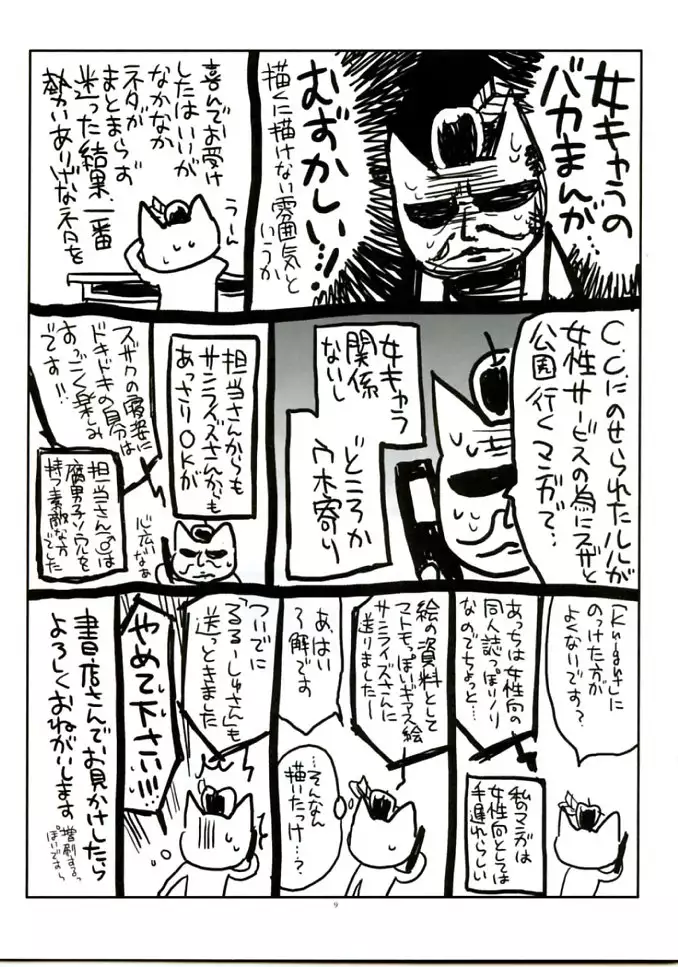 女キャラの
バカまんが
むずかしい…!!
描くに描けない雰囲気と
いうか
喜んでお受け
したはいいが
なかなか
ネタが
まとまらず
迷った結果、一番
勢いありげなネタを
うーん
C.C.にのせられたルルが
女性サービスの為にスザと
公園行くマンガで、
女キャラ
関係
ないし
どころか
ウホ寄り
担当さんからも
サンライズさんからも
あっさりOKが
スザクの
ドキドキの自分は
すっごく楽しみ
です!!
担当さん(♂)は
腐男子ソウルを
持つ素敵なか
でした
心広いなぁ
「Knight」に
のっけた方が
よくないです?
あっちは女性向の
同人誌っぽいノリ
なのでちょっと…
私のマンガは
女性向としては
手遅れらしい
絵の資料として
マトモっぽいギアス絵
サンライズさんに
送りましたー
あ、はい
了解です
…そんなん
描いたっけ…?
ついでに
「るるーしゅさん」も
送っときました
やめて下さい!!!
書店さんでお見かけしたら
よろしくおねがいします
増刷する
っぽいですから
9